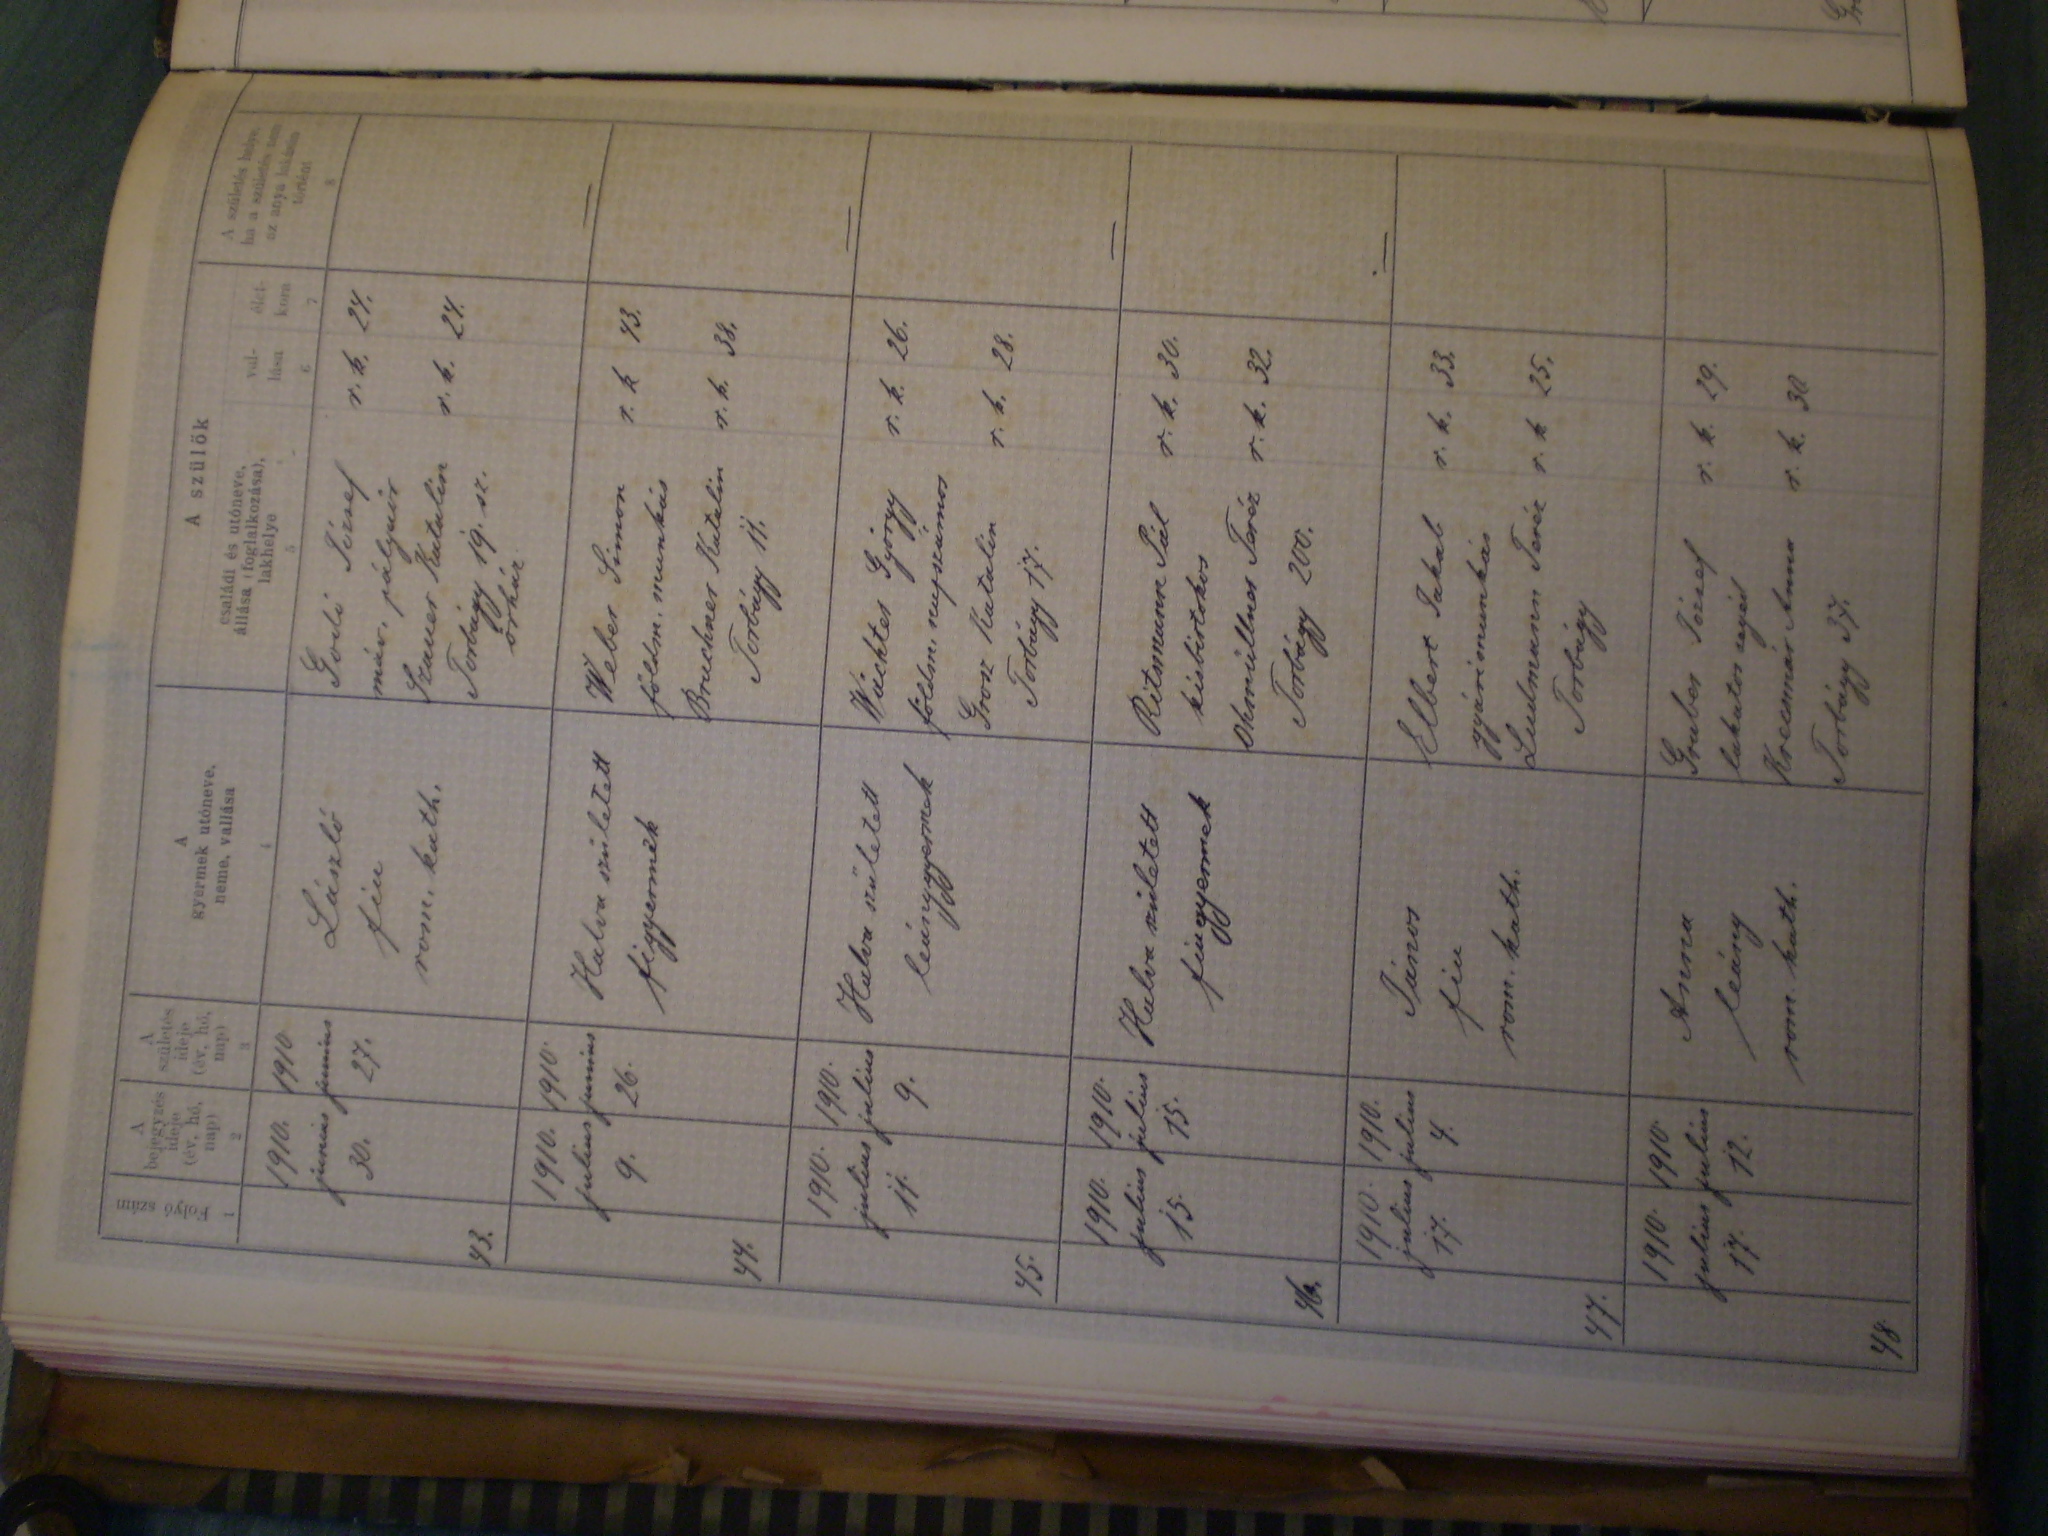 Folyó szám
1
A bejegyzés ideje (év, hó, nap)
2
A születés ideje (év, hó, nap)
3
A gyermek utóneve, neme, vallása
4
A szülők
családi és utóneve, állása (foglalkozása), lakhelye
5
vallása
6
életkora
7
A születés helye, ha a születés nem az anya lakásán történt
8
43.
1910. junius 30.
1910 junius 27.
László
fiu
rom. kath.
József r. k. 24.
máv. pályaőr
Katalin r. k. 24.
Torbágy 19. sz.
őrház
44.
1910. julius 9.
1910. junius 26.
Halva született
figyermek
Weber Simon r. k 43.
földm. munkás
Bruchner Katalin r. k. 38.
Torbágy 11.
45.
1910. julius 11.
1910. julius 9.
Halva született
leánygyermek
Wachtes György r. k. 26.
földm. napszámos
Grosz Katalin r. k. 28.
Torbágy 17.
46.
1910. julius 15.
1910. julius 15.
Halva született
fiugyermek
Ritsmann Pál r. k. 30.
kisbirtokos
Ohmüllner Teréz r. k. 32.
Torbágy 200.
47.
1910. julius 17.
1910. julius 4.
János
fiu
rom. kath.
Elbert Jakab r. k. 33.
gyári munkás
Ludmann Teréz r. k 25.
Torbágy
48.
1910. julius 17.
1910. julius 12.
Anna
leány
rom. kath.
Gruber József r. k. 29.
lakatos segéd
Krecsmár Anna r. k. 30
Torbágy 37.